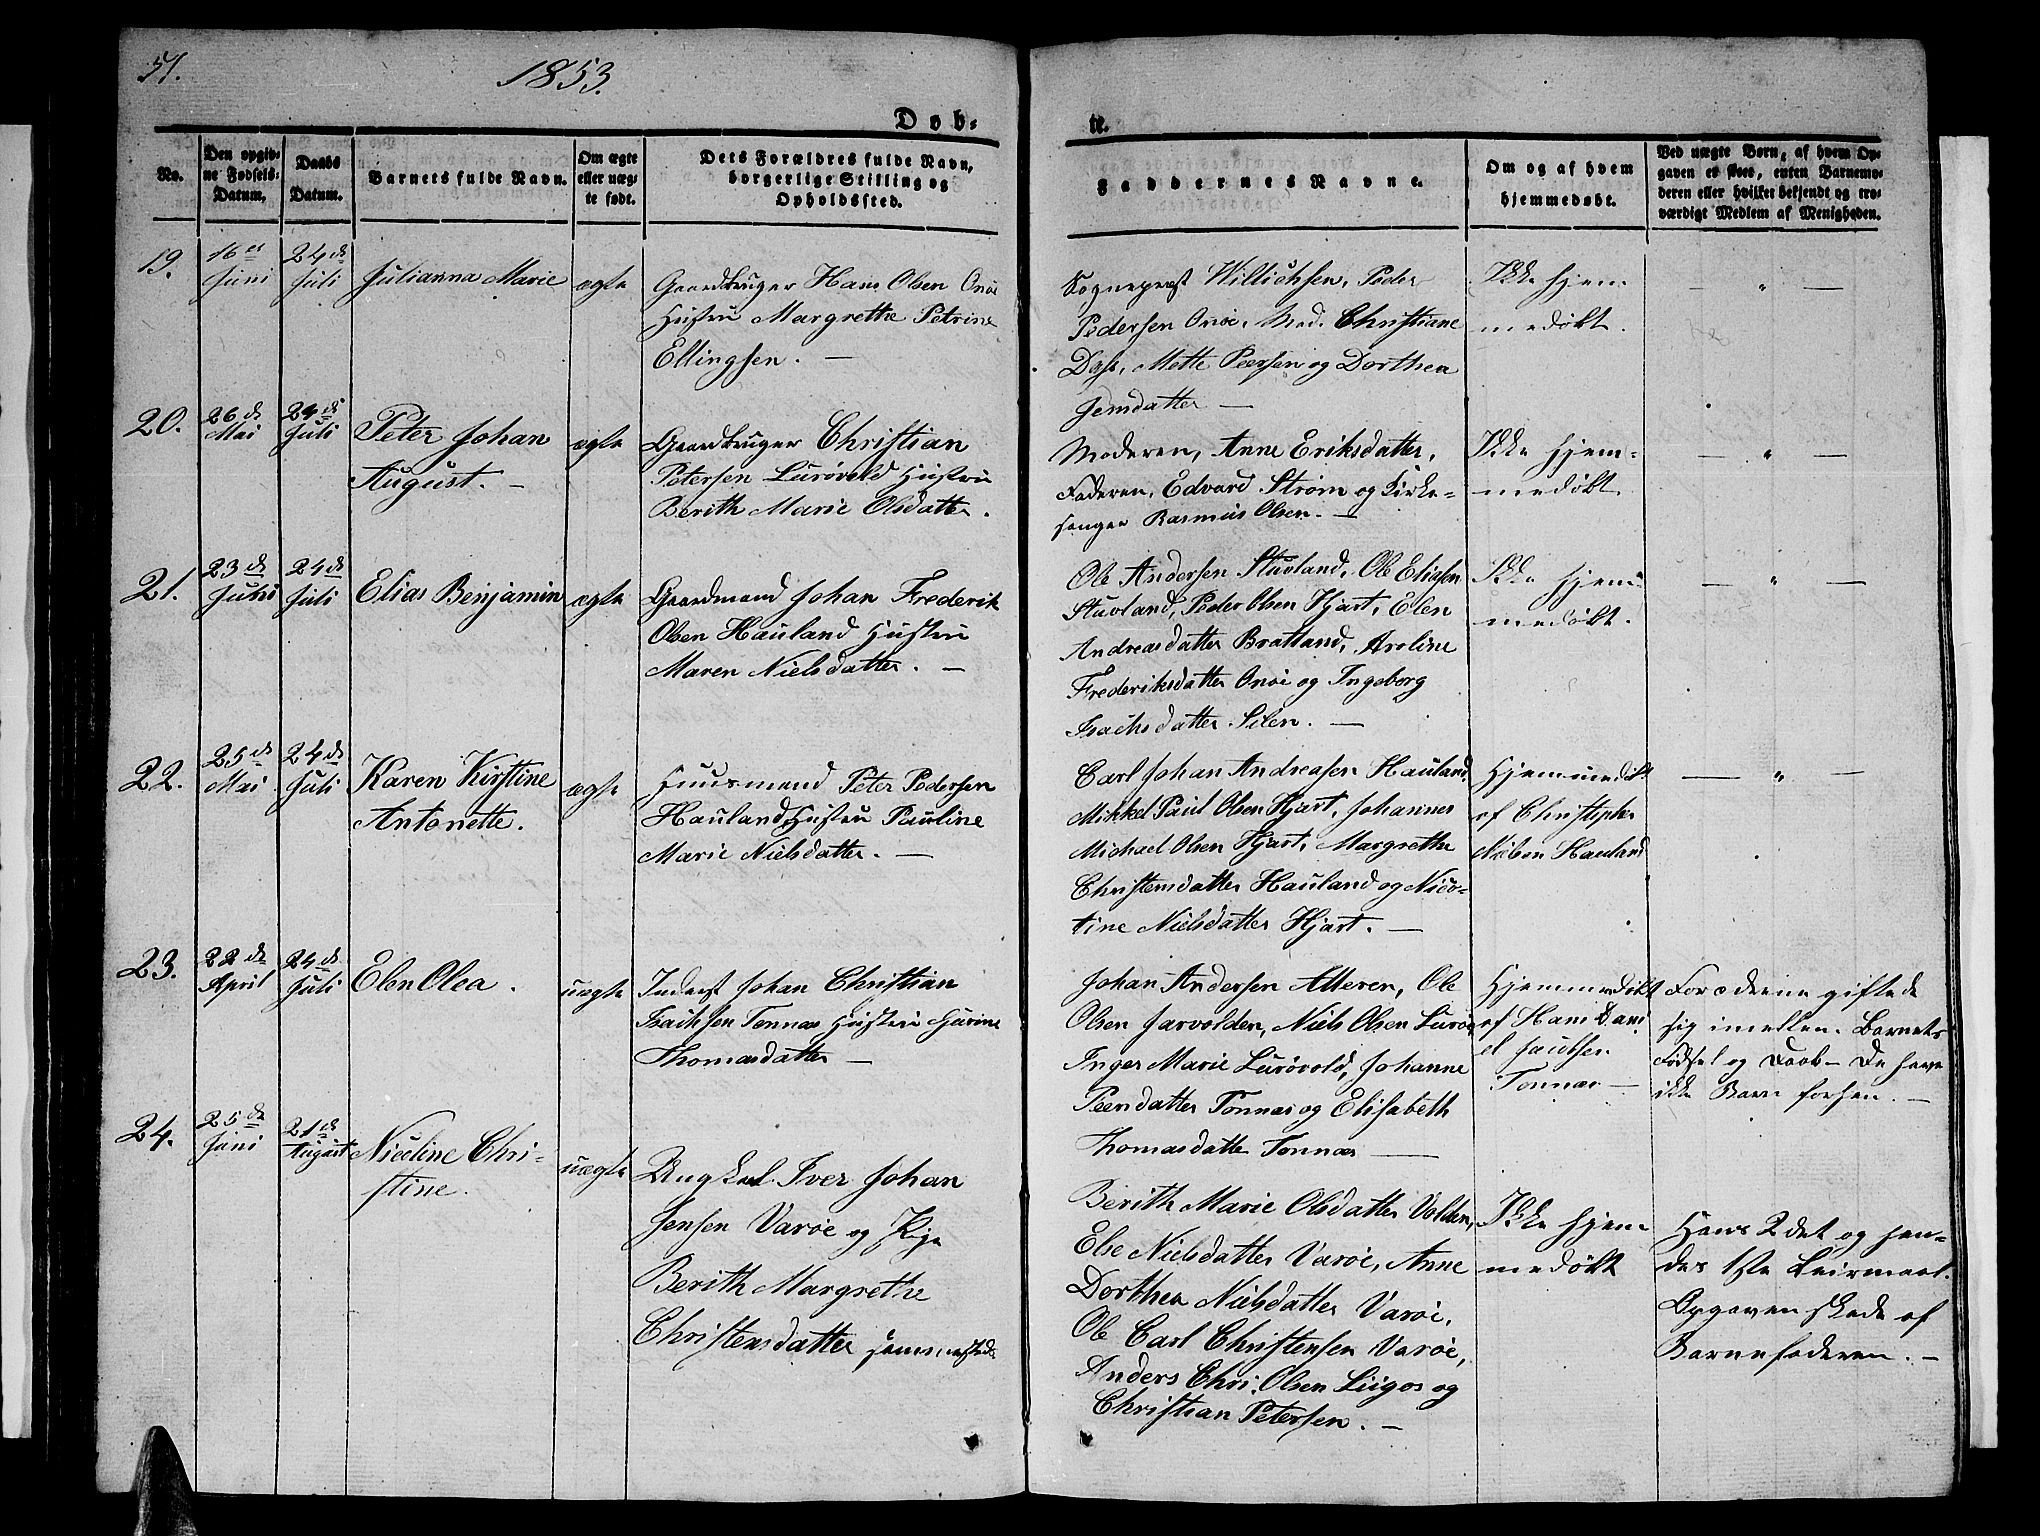 51.
1853.
Døb-
te.
No.
Den opgiv-
ne Fødsels-
Datum.
Daabs
Datum.
Barnets fulde Navn.
Om ægte
eller uæg-
te født.
Dets Forældres fulde Navn,
borgerlige Stilling og
Opholdssted.
Faddernes Navne.
Om og af hvem
hjemmedøbt.
Ved uægte Børn, af hvem Op-
gaven er skeet, enten Barnemo-
deren eller hvilket bekjendt og tro-
værdigt Medlem af Menigheden.
19.
16de
Juni
24de
Juli
Julianna Marie
ægte
Gaardbruger Hans Olsen Onøe
Hustru Margrethe Petrine
Ellingsen. —
Sognepræst Willichsen, Peder
Pedersen Onøe, Mad. Christiane
Dass, Mette Peersen og Dorthea
Jensdatter —
Ikke hjem
medøbt.
— " —
20.
26de
Mai
24de
Juli
Peter Johan
August. —
ægte
Gaardbruger Christian
Petersen Lurøvold Hustru
Berith Marie Olsdatter.
Moderen, Anne Eriksdatter,
Faderen, Edvard Strøm og Kirke-
sanger Rasmus Olsen. —
Ikke hjem-
medøbt.
— " —
21.
23de
Juni
24de
Juli
Elias Benjamin
ægte
Gaardmand Johan Frederik
Olsen Hauland Hustru
Maren Nielsdatter. —
Ole Andersen Stuvland, Ole Eliasen
Stuvland, Peder Olsen Hjart, Elen
Andreasdatter Bratland, Aroline
Frederiksdatter Onøe og Ingeborg
Isachsdatter Silen. —
Ikke hjem
medøbt.
— " —
22.
25de
Mai
24de
Juli
Karen Kirstine
Antonette.
ægte
Huusmand Peter Pedersen
Hauland Hustru Pauline
Marie Nielsdatter. —
Carl Johan Andreasen Hauland,
Mikkel Paul Olsen Hjart, Johannes
Michael Olsen Hjart, Margrethe
Christensdatter Hauland og Nico-
tine Nielsdatter Hjart. —
Hjemmedøbt
af Christopher
Nilsen Hauland
— " —
23.
22de
April
24de
Juli
Elen Olea.
uægte
Inderst Johan Christian
Isachsen Tonnæs Hustru
Thomasdatter —
Johan Andersen Alteren, Ole
Olsen Jarvolden, Niels Olsen Lurøe
Inger Marie Lurøvold, Johanne
Peersdatter Tonnæs og Elisabeth
Thomasdatter Tonnæs —
Hjemmedøbt
af Hans Dani
el Jacobsen
Tonnæs —
Forældrene giftede
sig imellem Barnets
Fødsel og Daab — De have
ikke Barn forhen. —
24.
25de
Juni
21de
August
Nicoline Chri-
stine.
uægte
Ungkarl Iver Johan
Jensen Varøe og Pige
Berith Margrethe
Christensdatter sammesteds
Berith Marie Olsdatter Volden,
Else Nielsdatter Varøe, Anne
Dorthea Nielsdatter Varøe,
Ole Carl Christensen Varøe,
Anders Chri. Olsen Liigos og
Christian Petersen. —
Ikke hjem
medøbt
Hans 2det og hen-
des 1ste Leirmaal.
Opgaven skede af
Barnefaderen. —